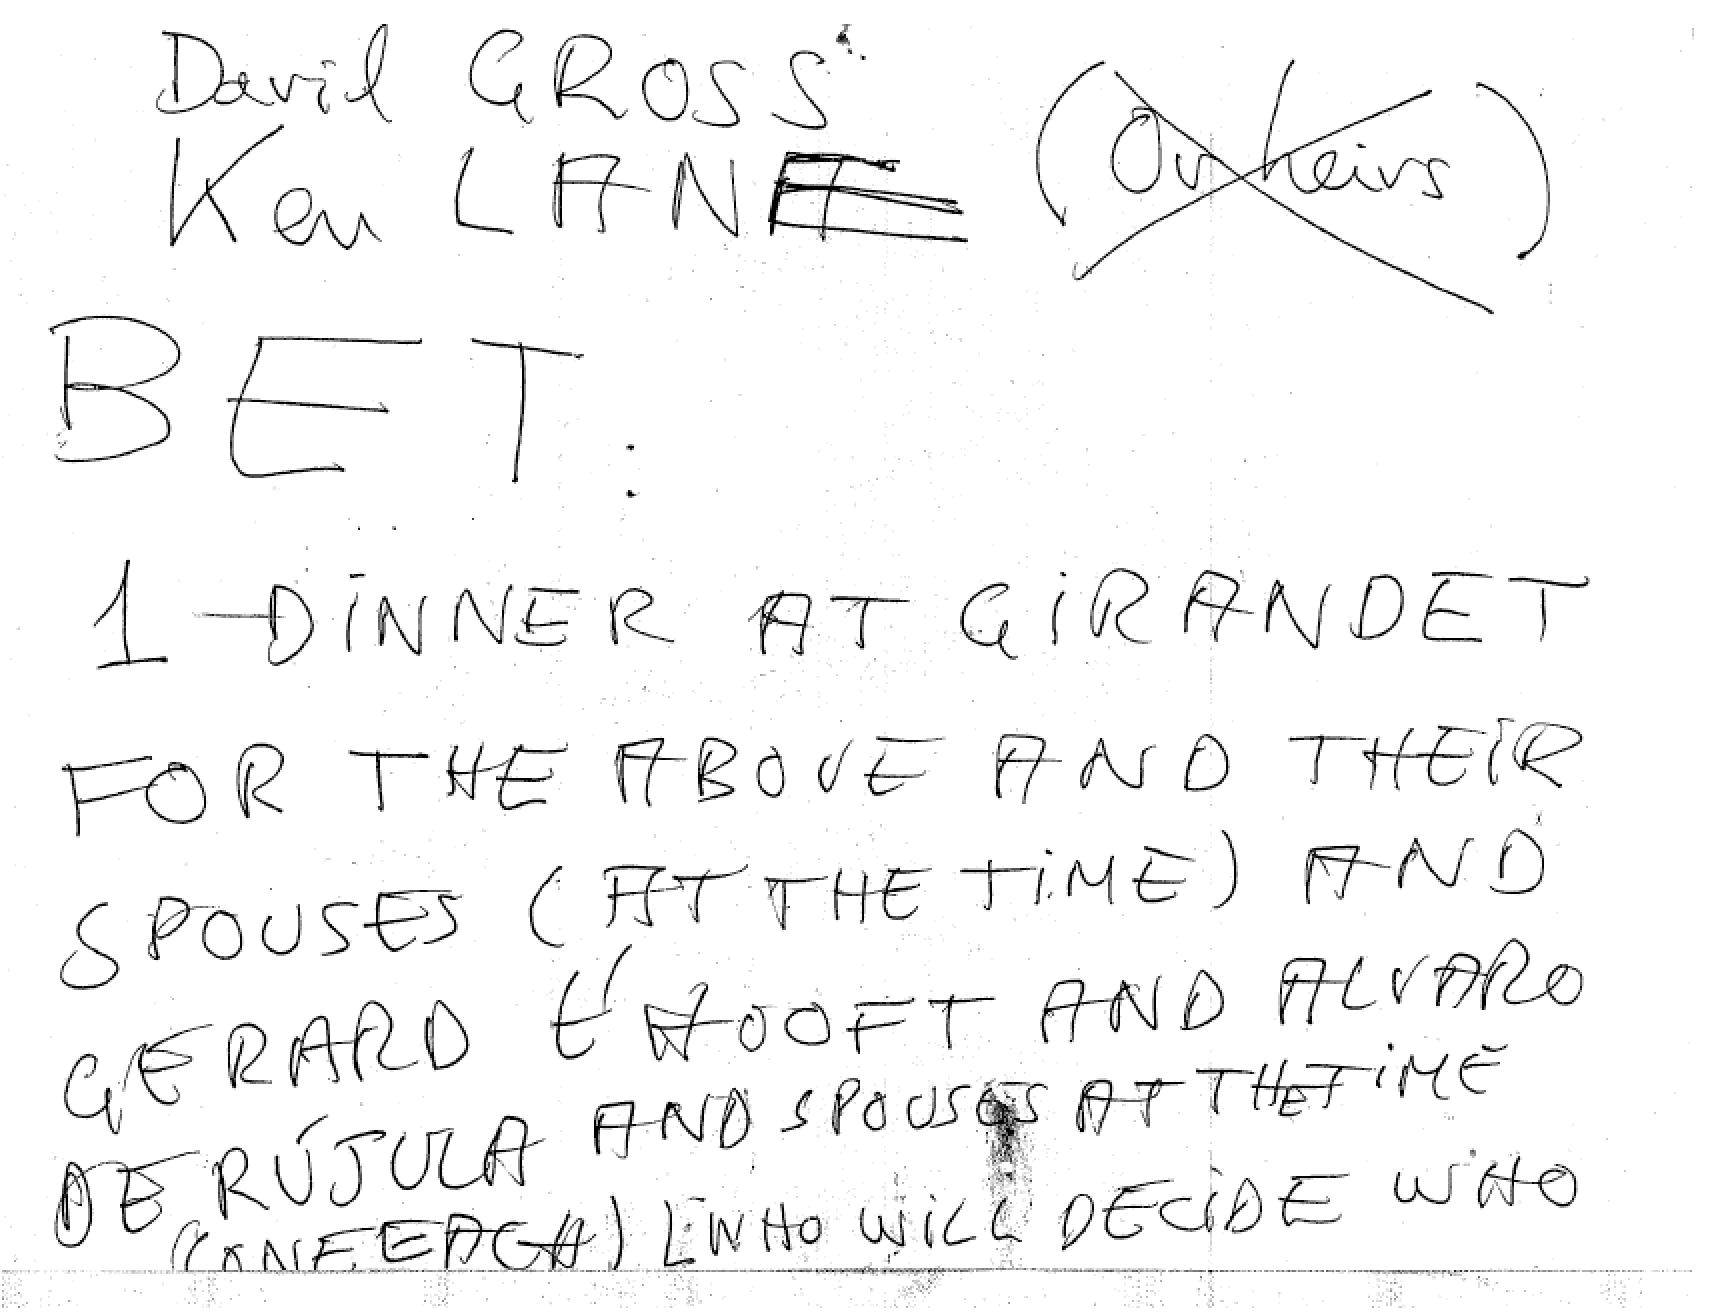 David GROSS
Ken LANE (Or heirs)
BET:
1 - DINNER AT GIRANDET
FOR THE ABOVE AND THEIR
SPOUSES (AT THE TIME) AND
GERARD t'HOOFT AND ALVARO
DE RÚJULA AND SPOUSES AT THE TIME
(ONE EACH) [WHO WILL DECIDE WHO